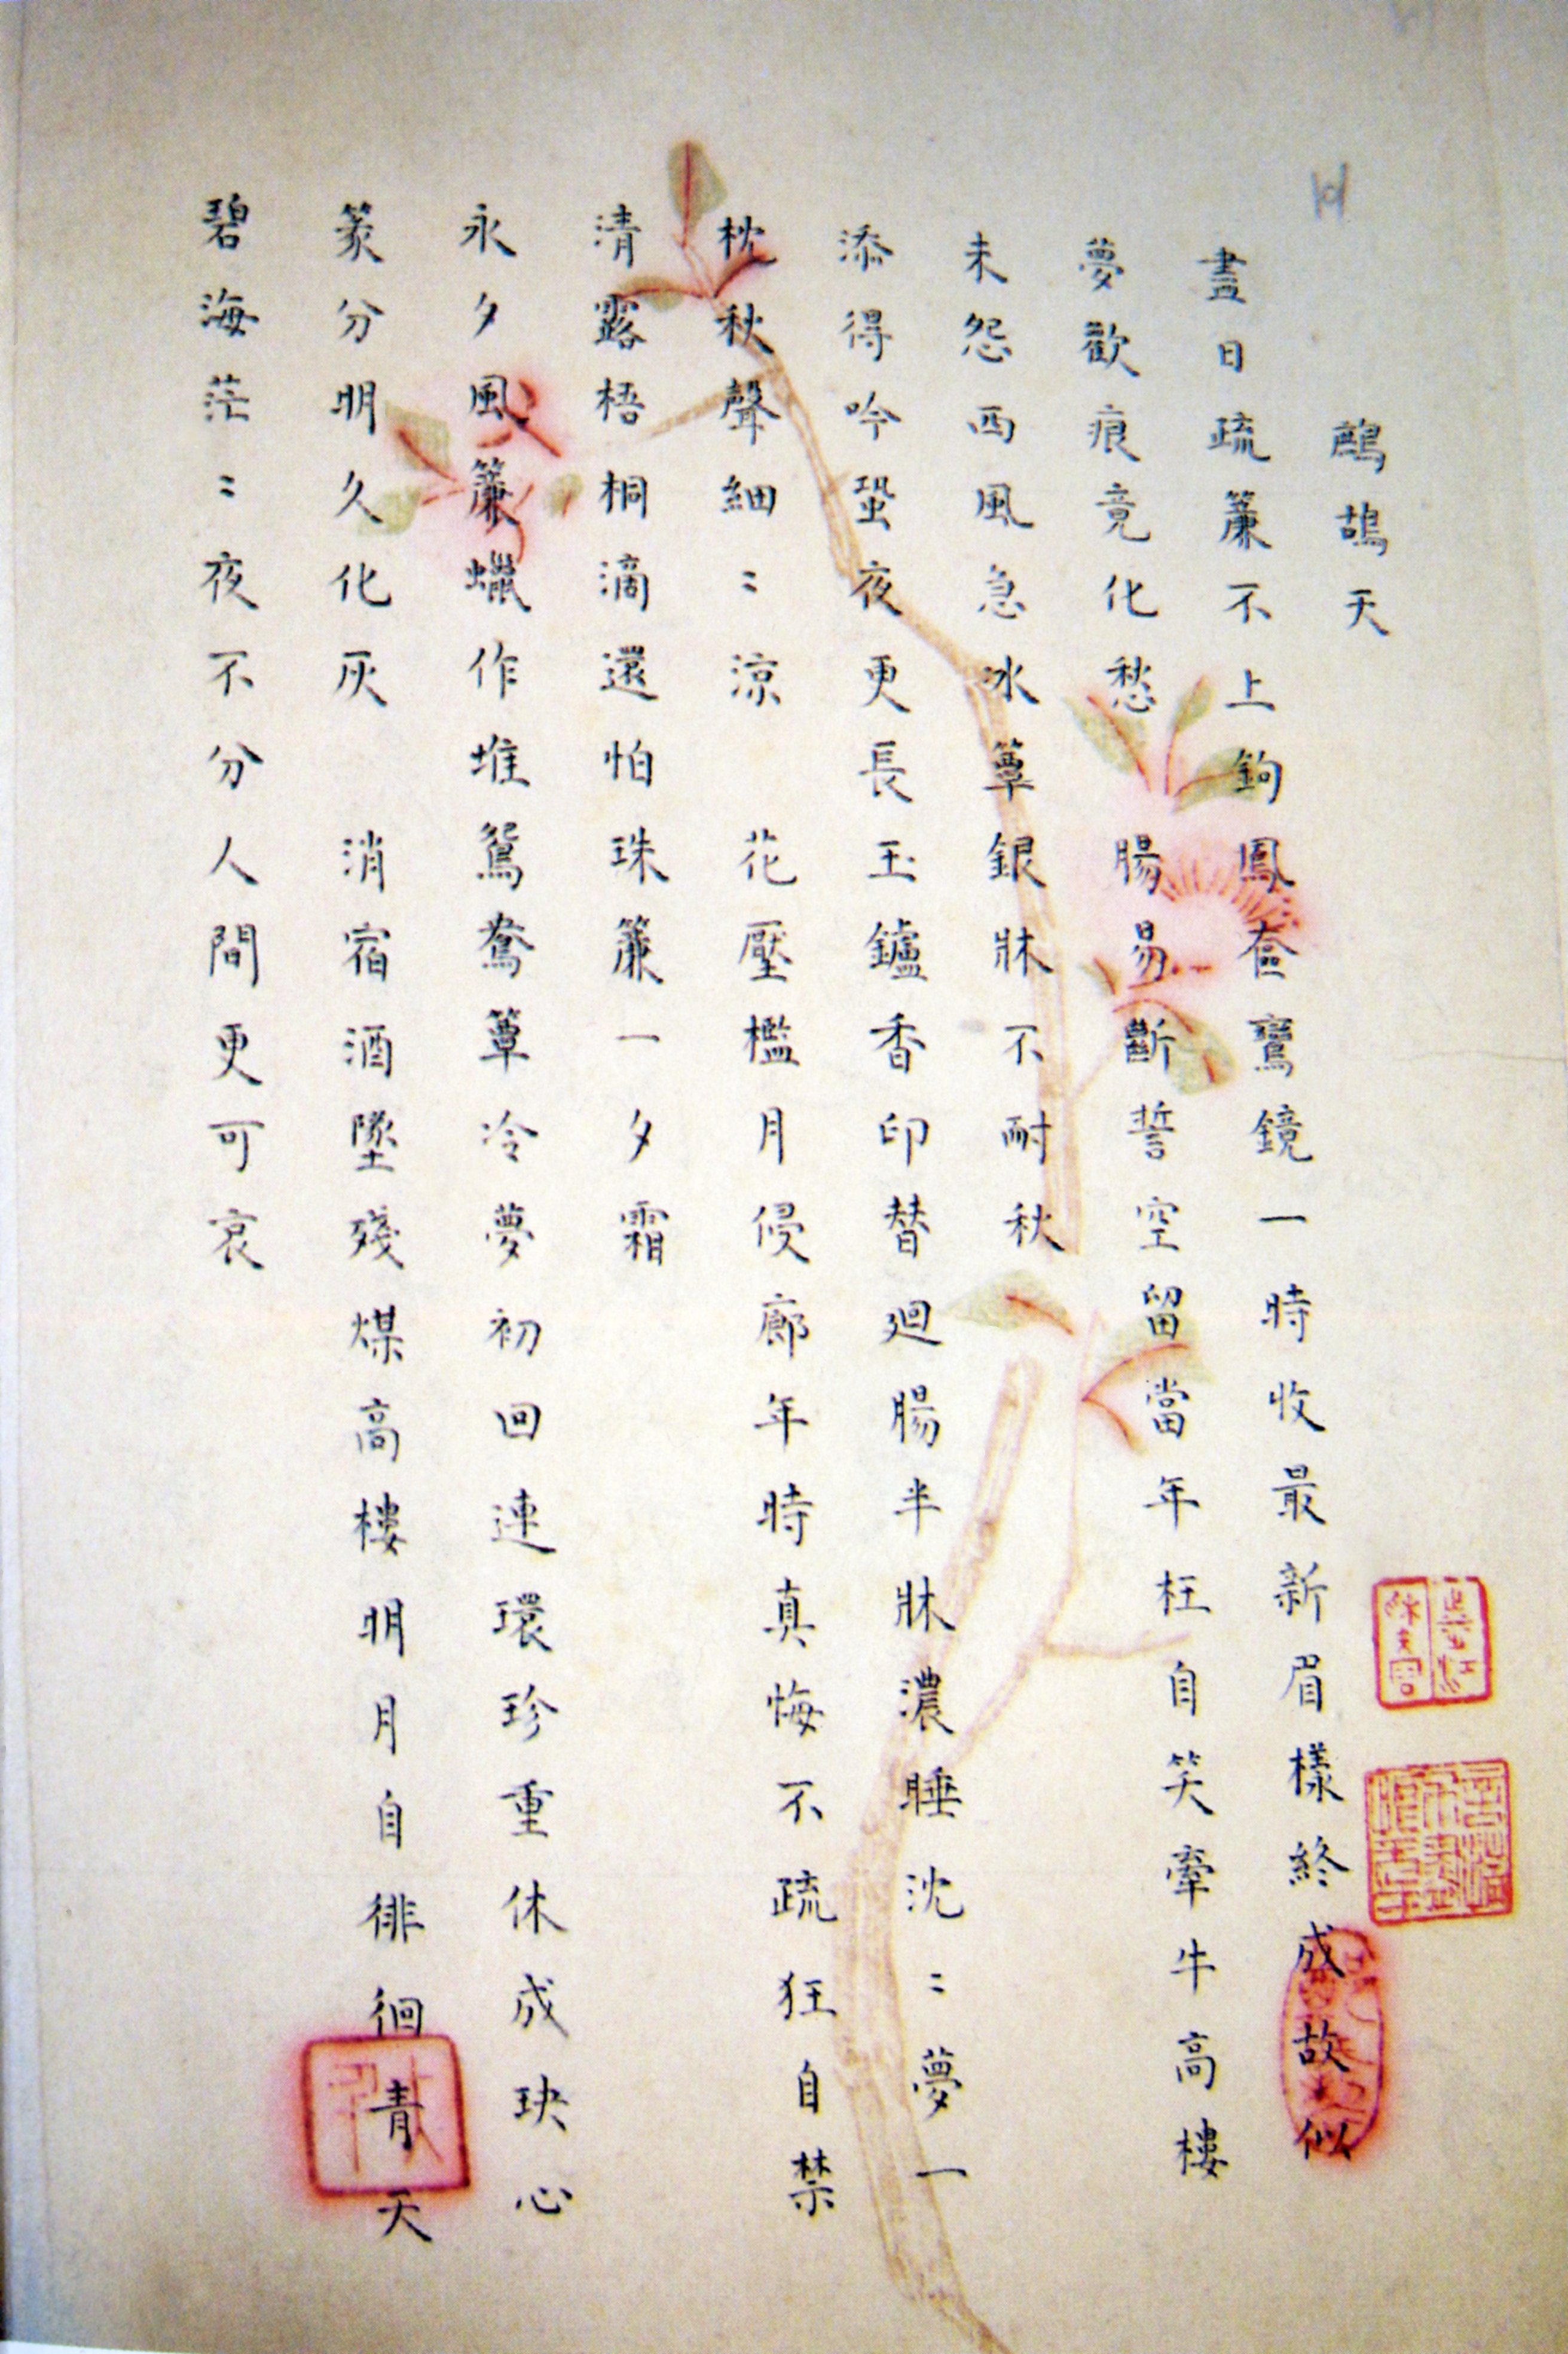 鷓鴣天
晝日疏簾不上鉤鳳奩鸞鏡一時收最新眉樣終成故似
夢歡痕竟化愁 腸易斷誓空留當年枉自笑牽牛高樓
未怨西風急冰簟銀牀不耐秋
添得吟蛩夜更長玉鑪香印替迴腸半牀濃睡沈〻夢一
枕秋聲細〻涼 花壓檻月侵廊年時真悔不疏狂自禁
清露梧桐滴還怕珠簾一夕霜
永夕風簾蠟作堆鴛鴦簟冷夢初回連環珍重休成玦心
篆分明久化灰 消宿酒墜殘煤高樓明月自徘徊青天
碧海茫〻夜不分人間更可哀